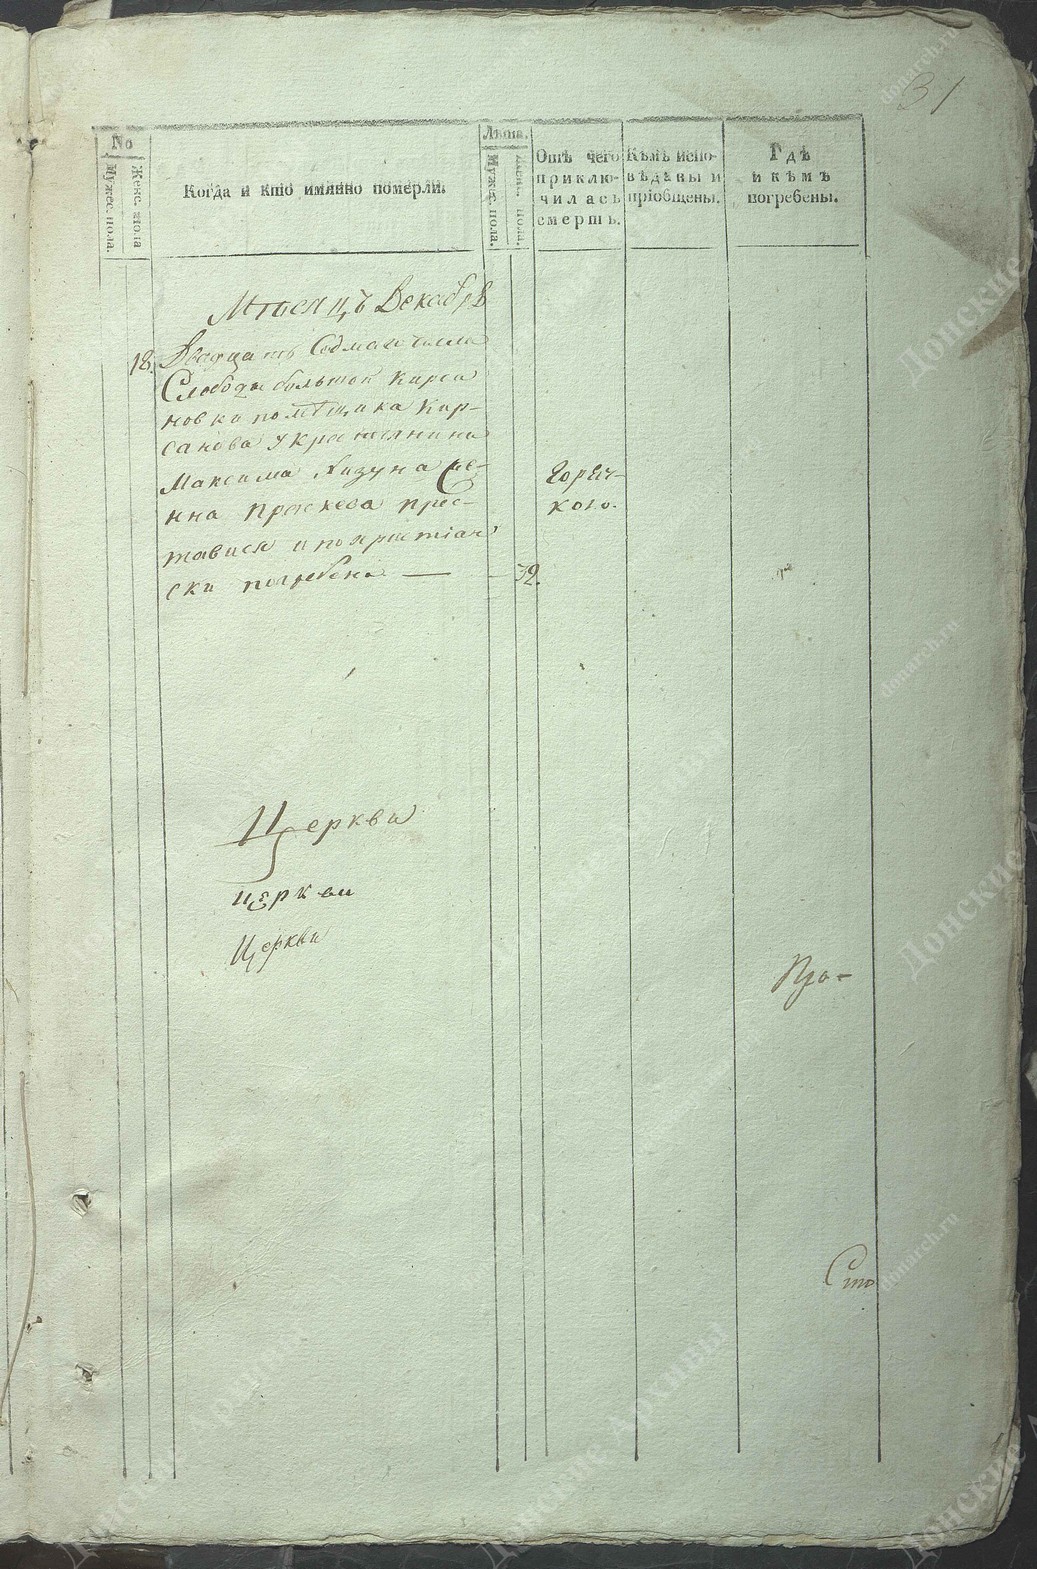 31
No
Мужес. пола.
Женс. пола
Когда и кто имянно померли.
Лѣта.
Мужес. пола.
Женс. пола.
Отъ чего
приклю-
чилась
смерть.
Кѣмъ испо-
вѣданы и
пріобщены.
Гдѣ
и кѣмъ
погребены.
Мѣсяцъ Декабрь
18. Двадцать Седмаго числа
Слободы большой Кирса
новки помѣщика Кир-
санова у крестьянина
Максима Лизуна же-
нна Праскева прес-
тавися и похристіан
ски погребена — 32.
горяч-
кою.
Церкви
церкви
Церкви
Про-
Сто
Донские Архивы
donarch.ru